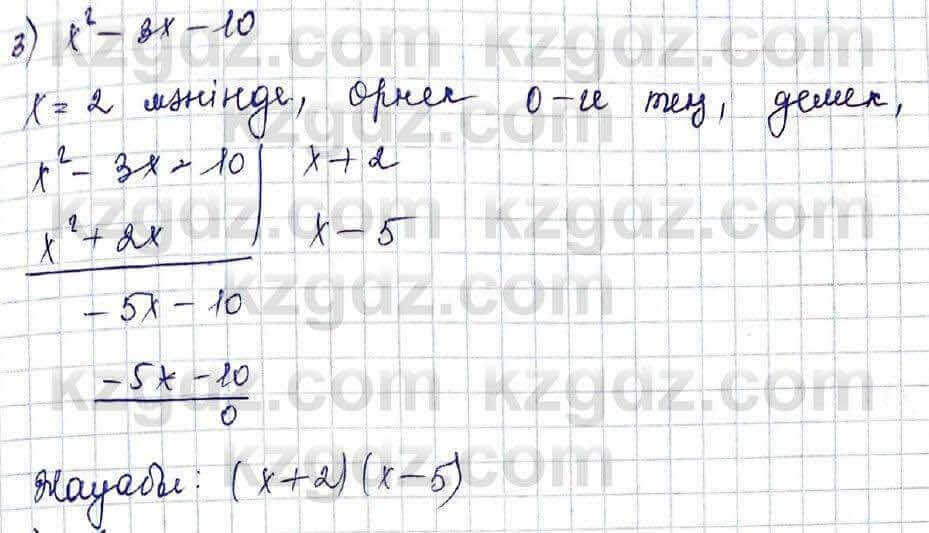 3) x² - 3x - 10
x = 2 мәнінде, өрнек 0-ге тең, демек,
x² - 3x - 10 | x + 2
x² + 2x | x - 5
- 5x - 10
- 5x - 10
0
Жауабы: (x+2)(x-5)
kzgdz.com kzgdz.com
kzgdz.com
kzgdz.com kzgdz.com
kzgdz.com
kzgdz.com kzgdz.com
kzgdz.com